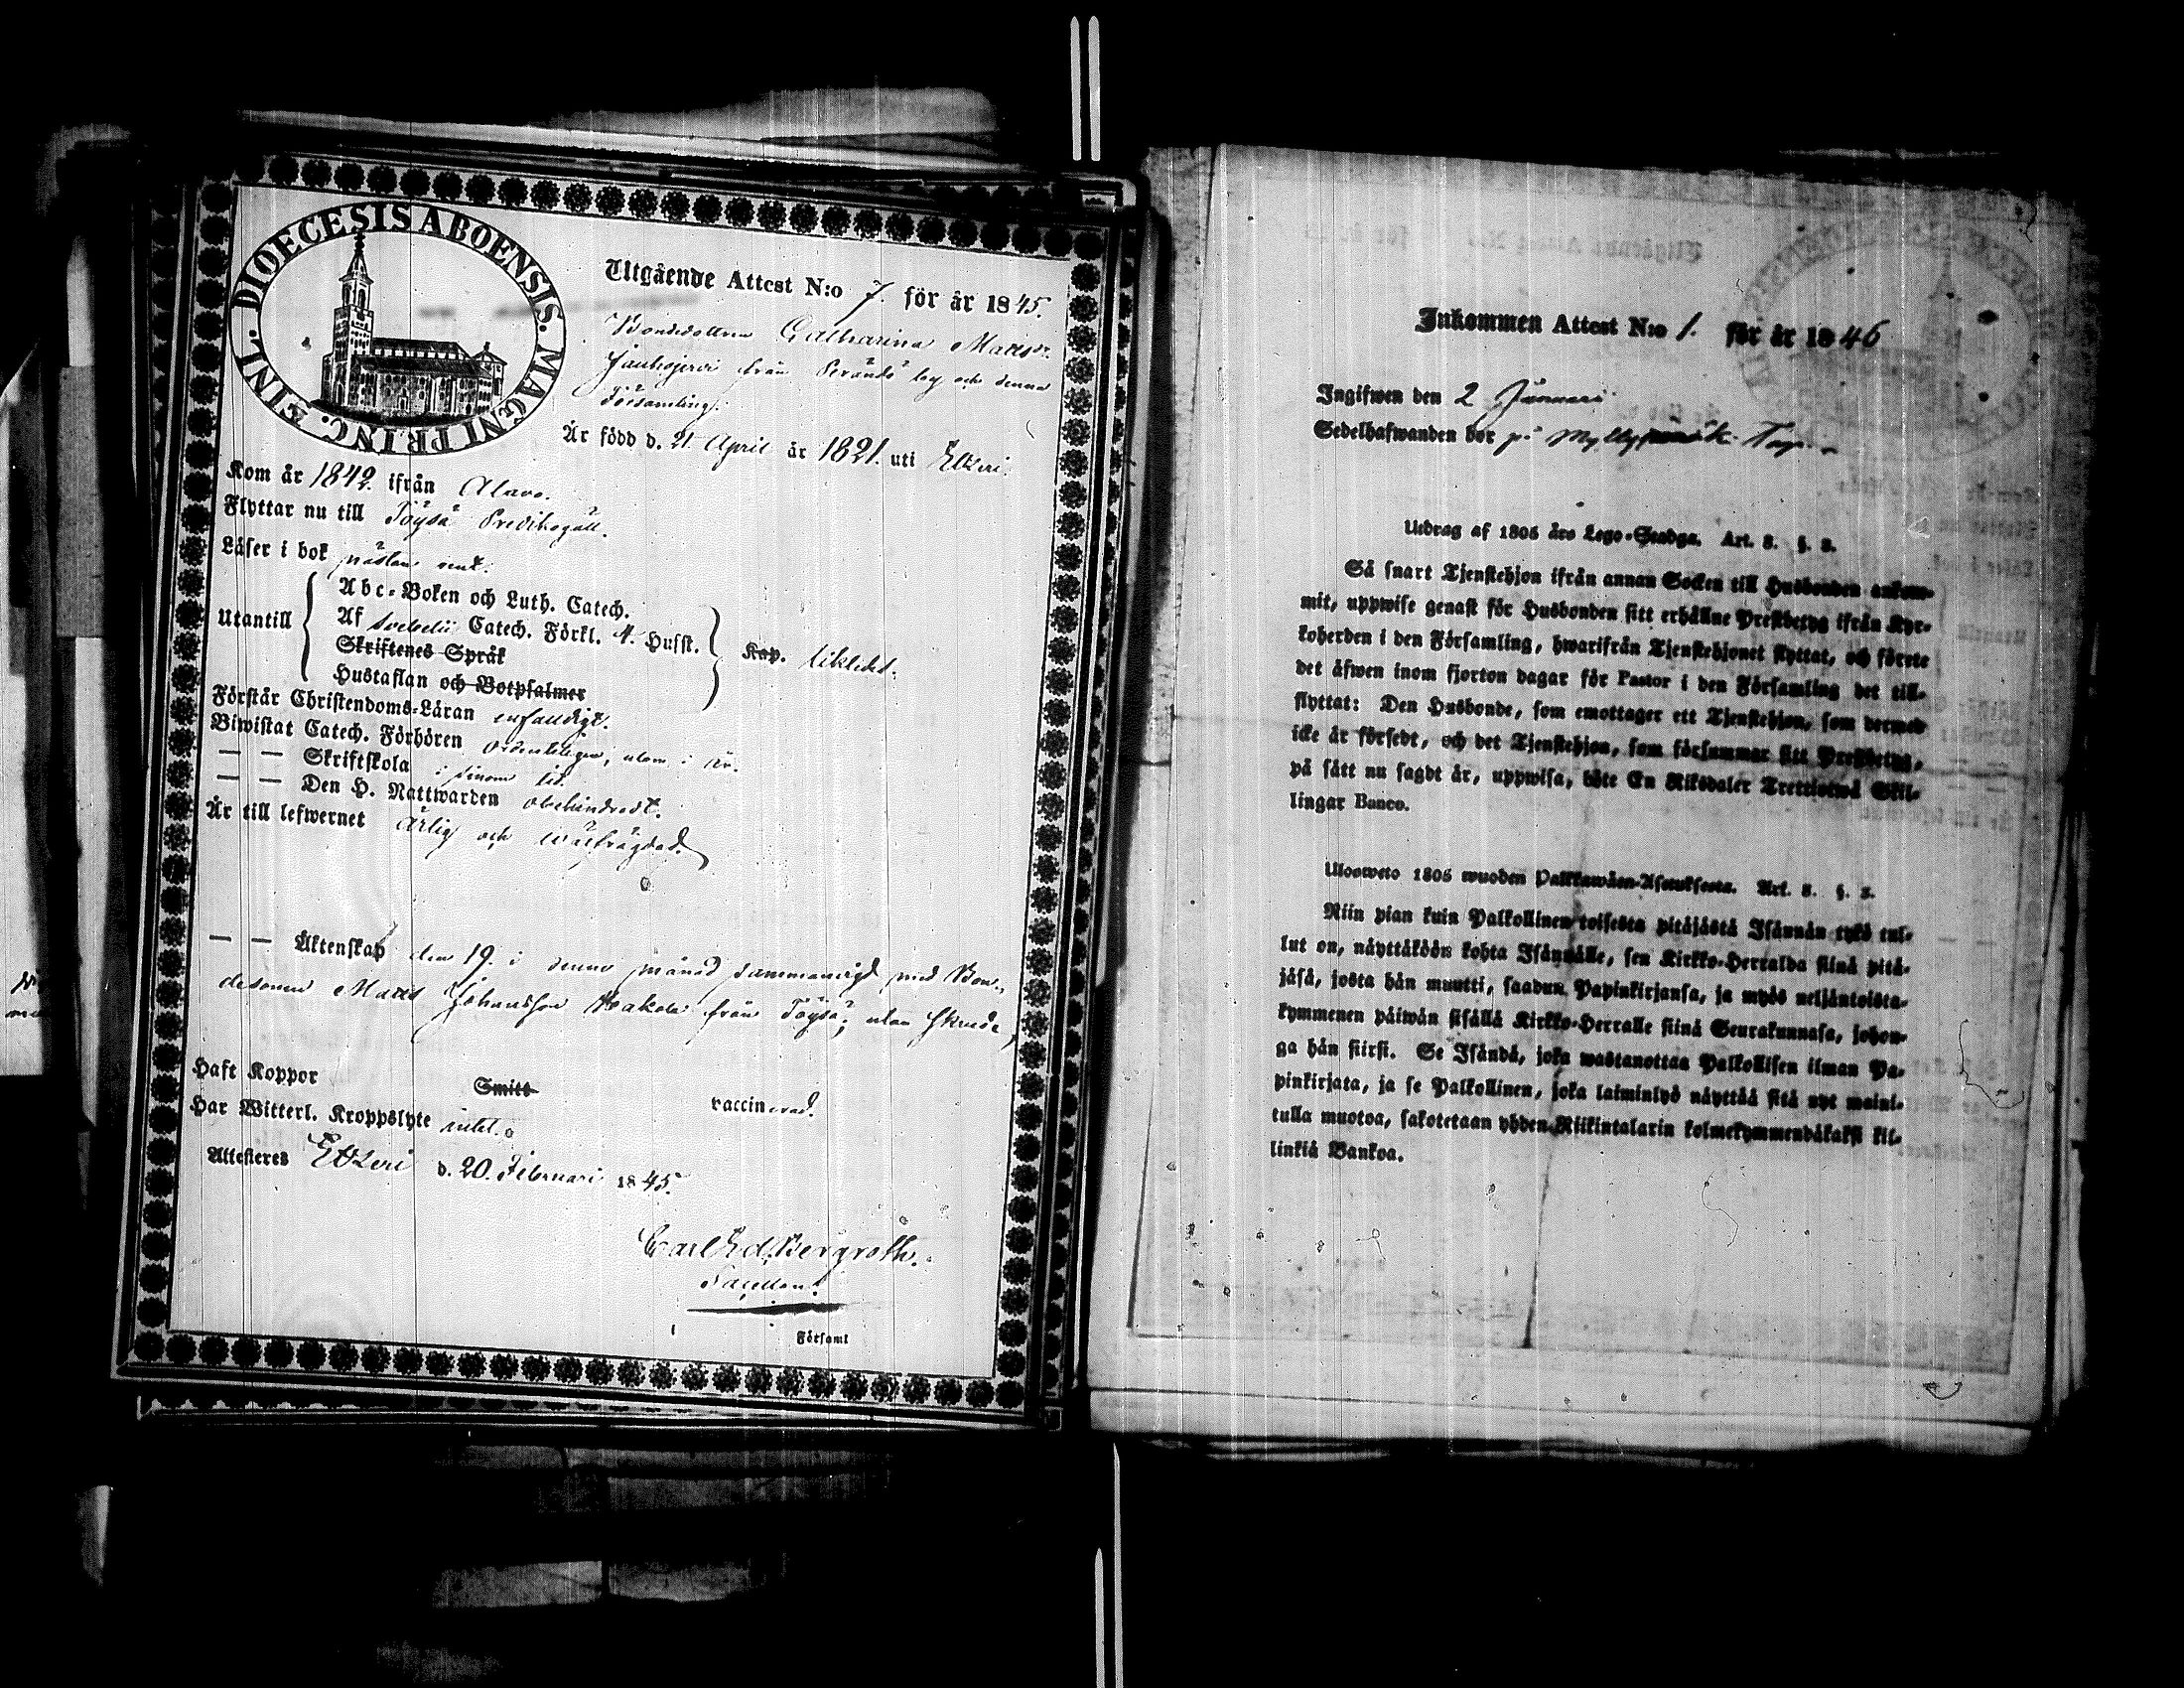 DIOECESIS ABOENSIS. MAGNI PRINC. FINL.
Utgående Attest N:o 7. för år 1845.
Bondedottren Catharina Matts
från Perändö by och denna
Församling.
Är född d. 21 April år 1821. uti Etseri.
Kom år 1842. ifrån Alavo.
Flyttar nu till Töysä Predikogäll.
Läser i bok nästan rent.
Utantill
Abc-Boken och Luth. Catech.
Af Svebelii Catech. Förkl. 4. Husst.
Skriftenes Språk
Hustaflan och Botpsalmer
Kap.
Förstår Christendoms-Läran enfaldigt.
Biwistat Catech. Förhören ordenteligen, utom i år.
— — Skriftskola i sinom tid.
— — Den H. Nattwarden obehindradt.
Är till lefwernet ärlig och wälfrägdad.
— — Äktenskap den 19. i denna månad sammanvigd med Bon-
desonen Matts Johansson från Töysä; utan
Haft Koppor Smitt vaccinerad.
Har Witterl. Kroppslyte intet.
Attesteres Etseri d. 20. Februari 1845.
Carl Ed. Bergroth.
Sacellan.
Församl
Inkommen Attest N:o 1. för år 1846
Ingifwen den 2 Januari
Sedelhafwanden bor på
Utdrag af 1805 års Lego-Stadga. Art. 8. §. 8.
Så snart Tjenstehjon ifrån annan Socken till Husbonden ankom-
mit, uppwise genast för Husbonden sitt erhållne Prestbetyg ifrån Kyr-
koherden i den Församling, hwarifrån Tjenstehjonet flyttat, och förete
det äfwen inom fjorton dagar för Pastor i den Församling det till-
flyttat: Den Husbonde, som emottager ett Tjenstehjon, som dermed
icke är försedt, och det Tjenstehjon, som försummar sitt Prestbetyg,
på sätt nu sagdt är, uppwisa, böte En Riksdaler Trettiotwå Skil-
lingar Banco.
Ulosweto 1805 wuoden Palkkawäen-Asetuksesta. Art. 8. §. 8.
Niin pian kuin Palkollinen toisesta pitäjästä Isännän tykö tul-
lut on, näyttäköön kohta Isännälle, sen Kirkko-Herralda siinä pitä-
jäsä, josta hän muutti, saadun Papinkirjansa, ja myös neljäntoista-
kymmenen päiwän sisällä Kirkko-Herralle siinä Seurakunnasa, johon-
ga hän siirsi. Se Isändä, joka wastanottaa Palkollisen ilman Pa-
pinkirjata, ja se Palkollinen, joka laiminlyö näyttää sitä nyt maini-
tulla muotoa, sakotetaan yhden Riikintalarin kolmekymmendäkaksi kil-
linkiä Bankoa.